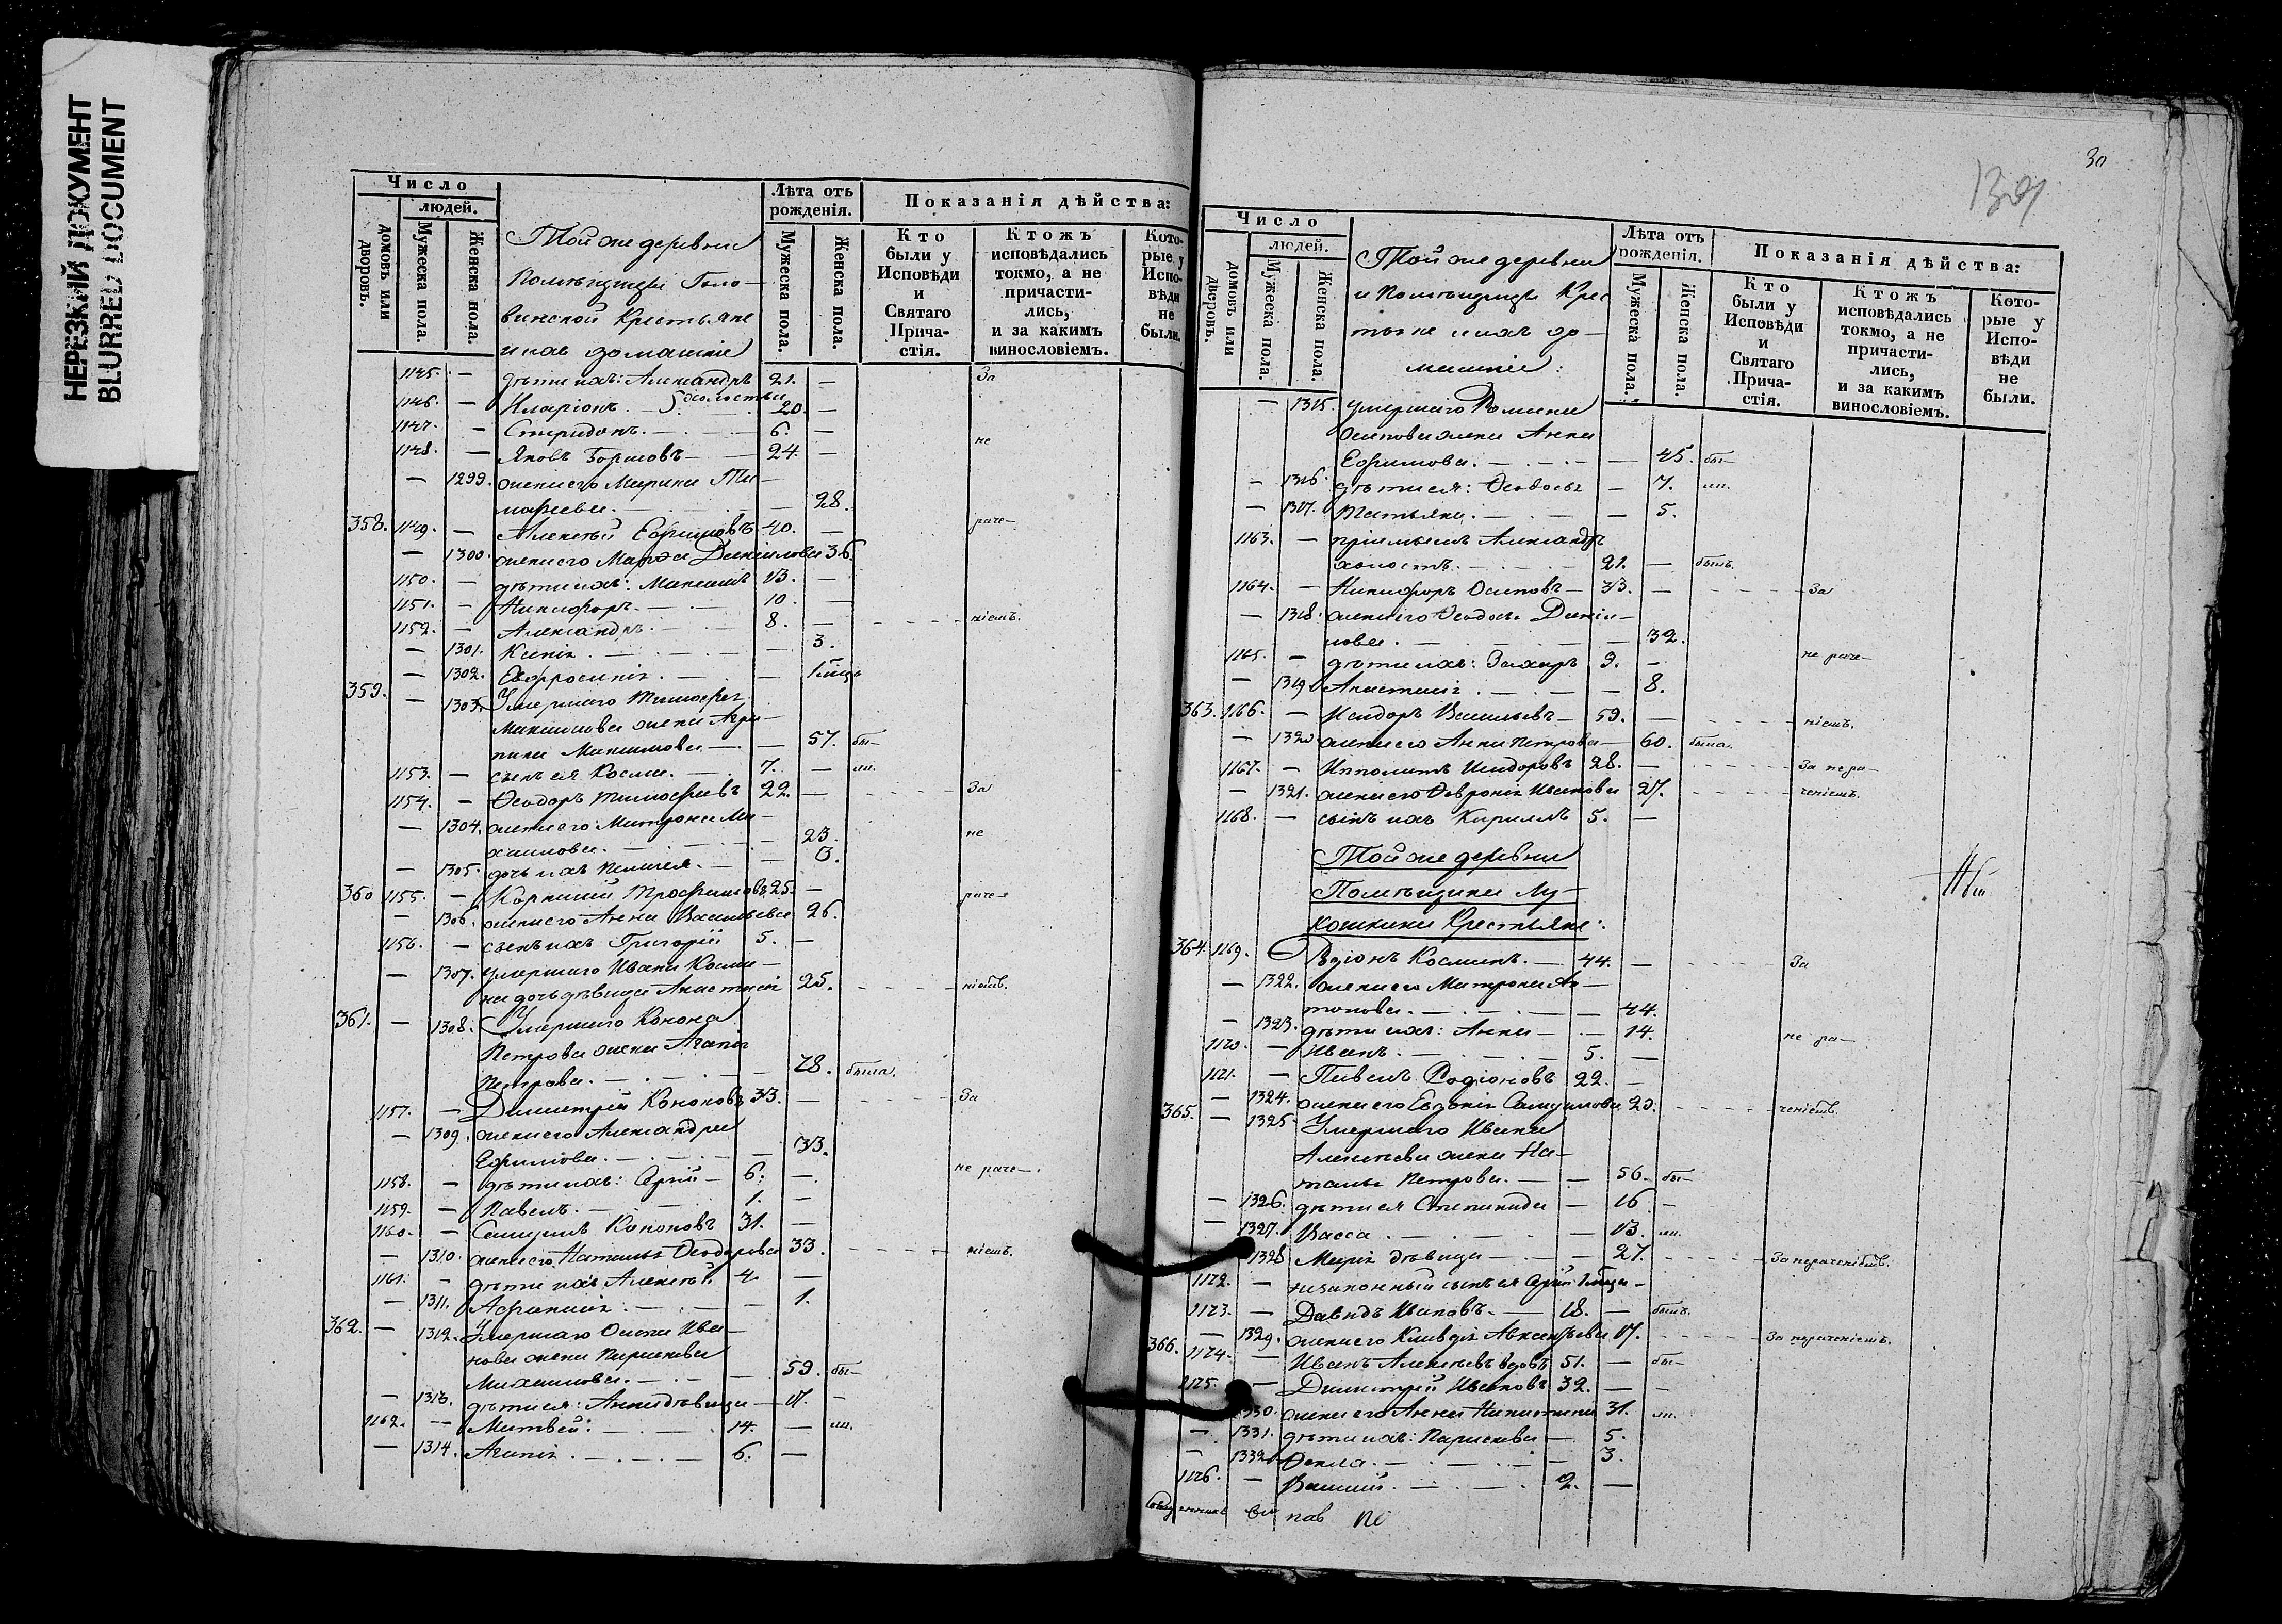 НЕРЕЗКИЙ ДОКУМЕНТ
BLURRED DOCUMENT
Число
людей.
домовъ или дворовъ.
Мужеска пола.
Женска пола.
Той же деревни
Помѣщицы Голо-
винской Крестьяне
и ихъ домашніе
Лѣта отъ рожденія.
Мужеска пола.
Женска пола.
Показанія дѣйства:
Кто были у Исповѣди и Святаго Прича- стія.
Ктожъ исповѣдались токмо, а не причасти- лись, и за какимъ винословіемъ.
Кото- рые у Испо- вѣди не были.
1145. — дѣти ихъ: Александръ 21. — За
1146. — Иларіонъ. холосты 20. —
1147. — Спиридонъ. 6. —
1148. — Яковъ Борисовъ 24. — не
— 1299. жена его Марина Ти-
мофеева. — 28.
358. 1149. — Алексѣй Ефимовъ 40. — раче-
— 1300. жена его Марфа Данилова 36.
1150. — дѣти ихъ: Максимъ 13. —
1151. — Никифоръ. 10. —
1152. — Александръ. 8. — ніемъ.
— 1301. Ксенія. — 3.
— 1302. Ефросинія. —
359. — 1303. Умершаго Тимофея
Максимова жена Агри-
пина Максимова. — 57. бы-
1153. — сынъ ея Косма. 7. — ли.
1154. — Ѳеодоръ Тимофеевъ 22. — За
— 1304. жена его Матрона Ми-
хаилова. — 23. не
— 1305. дочь ихъ Пелагея. — 3.
360 1155. — Корнилій Трофимовъ 25. — раче-
— 1306. жена его Анна Васильева 26.
1156. — сынъ ихъ Григорій 5. —
— 1307. умершаго Ивана Косми-
на дочь дѣвица Анастасія 25. ніемъ.
361. — 1308. Умершаго Конона
Петрова жена Агапія
Петрова. — 78. была.
1157. — Димитрій Кононовъ 33. — За
— 1309. жена его Александра
Ефимова. — 33.
1158. — дѣти ихъ: Сергій 6. — не раче-
1159. — Павелъ. 1. —
1160. — Самуилъ Кононовъ 31. —
— 1310. жена его Наталья Ѳеодорова 33. ніемъ.
1161. — дѣти ихъ Алексѣй 4. —
— 1311. — 1.
362. — 1312. Умершаго Осипа Ива-
нова жена Параскева
Михаилова. — 59. бы-
— 1313. дѣти ея: Анна дѣвица — 17. —
1162. — Матвей: 14. — ли.
— 1314. Агапія 6. —
30
Число
людей.
домовъ или дворовъ.
Мужеска пола.
Женска пола.
Той же деревни
и Помѣщицы Крес
тьяне и ихъ до-
машніе:
Лѣта отъ рожденія.
Мужеска пола.
Женска пола.
Показанія дѣйства:
Кто были у Исповѣди и Святаго Прича- стія.
Ктожъ исповѣдались токмо, а не причасти- лись, и за какимъ винословіемъ.
Кото- рые у Испо- вѣди не были.
— 1315. умершаго Романа
Осипова жена Анна
Ефимова. — 45. бы-
— 1316. дѣти ея: Ѳеодосья — 7. ли.
— 1317. Татьяна. — 5.
1163. — пріемышъ Александръ
холостъ. 21. — былъ.
1164. — Никифоръ Осиповъ 33. — За
— 1318. жена его Ѳеодосья Дани-
лова. — 32.
1165. — дѣти ихъ: Захаръ 9. — не раче-
— 1319. Анастасія. — 8.
363. 1166. — Исидоръ Васильевъ 59. — ніемъ.
— 1320. жена его Анна Петрова — 60. была.
1167. — Ипполитъ Исидоровъ 28. — За нера-
— 1321. жена его Ѳевронія Иванова 27. ченіемъ.
1168. — сынъ ихъ Кириллъ 5. —
Той же деревни
Помѣщика Лу-
кошкина Крестьяне:
364. 1169. — Родіонъ Косминъ. 44. — За
— 1322. жена его Матрона Ан-
тонова. — 44.
— 1323. дѣти ихъ: Анна — 14. не ра-
1170. — Иванъ. 5. —
1171. — Павелъ Родіоновъ 22. —
— 1324. жена его Евдокія Самуилова 20. ченіемъ.
365. — 1325. Умершаго Ивана
Алексѣева жена На-
талья Петрова. — 56. бы-
— 1326. дѣти ея Степанида — 16. —
— 1327. Васса. — 13. ли.
1328 Марія дѣвица — 27. За нераченіемъ.
1172. — незаконный сынъ ея Сергій
1173. — Давидъ Ивановъ. 18. — былъ.
— 1329. жена его Клавдія Авксентьева 17. За нераченіемъ.
366. 1174. — Иванъ Алексѣевъ вдовъ 51. — бы-
1175. — Димитрій Ивановъ 32. — —
1330. жена его Анна Никитина 31. ли.
— 1331. дѣти ихъ: Параскева — 5.
— 1332. Ѳекла. — 3.
1176. — Василій. 2. —